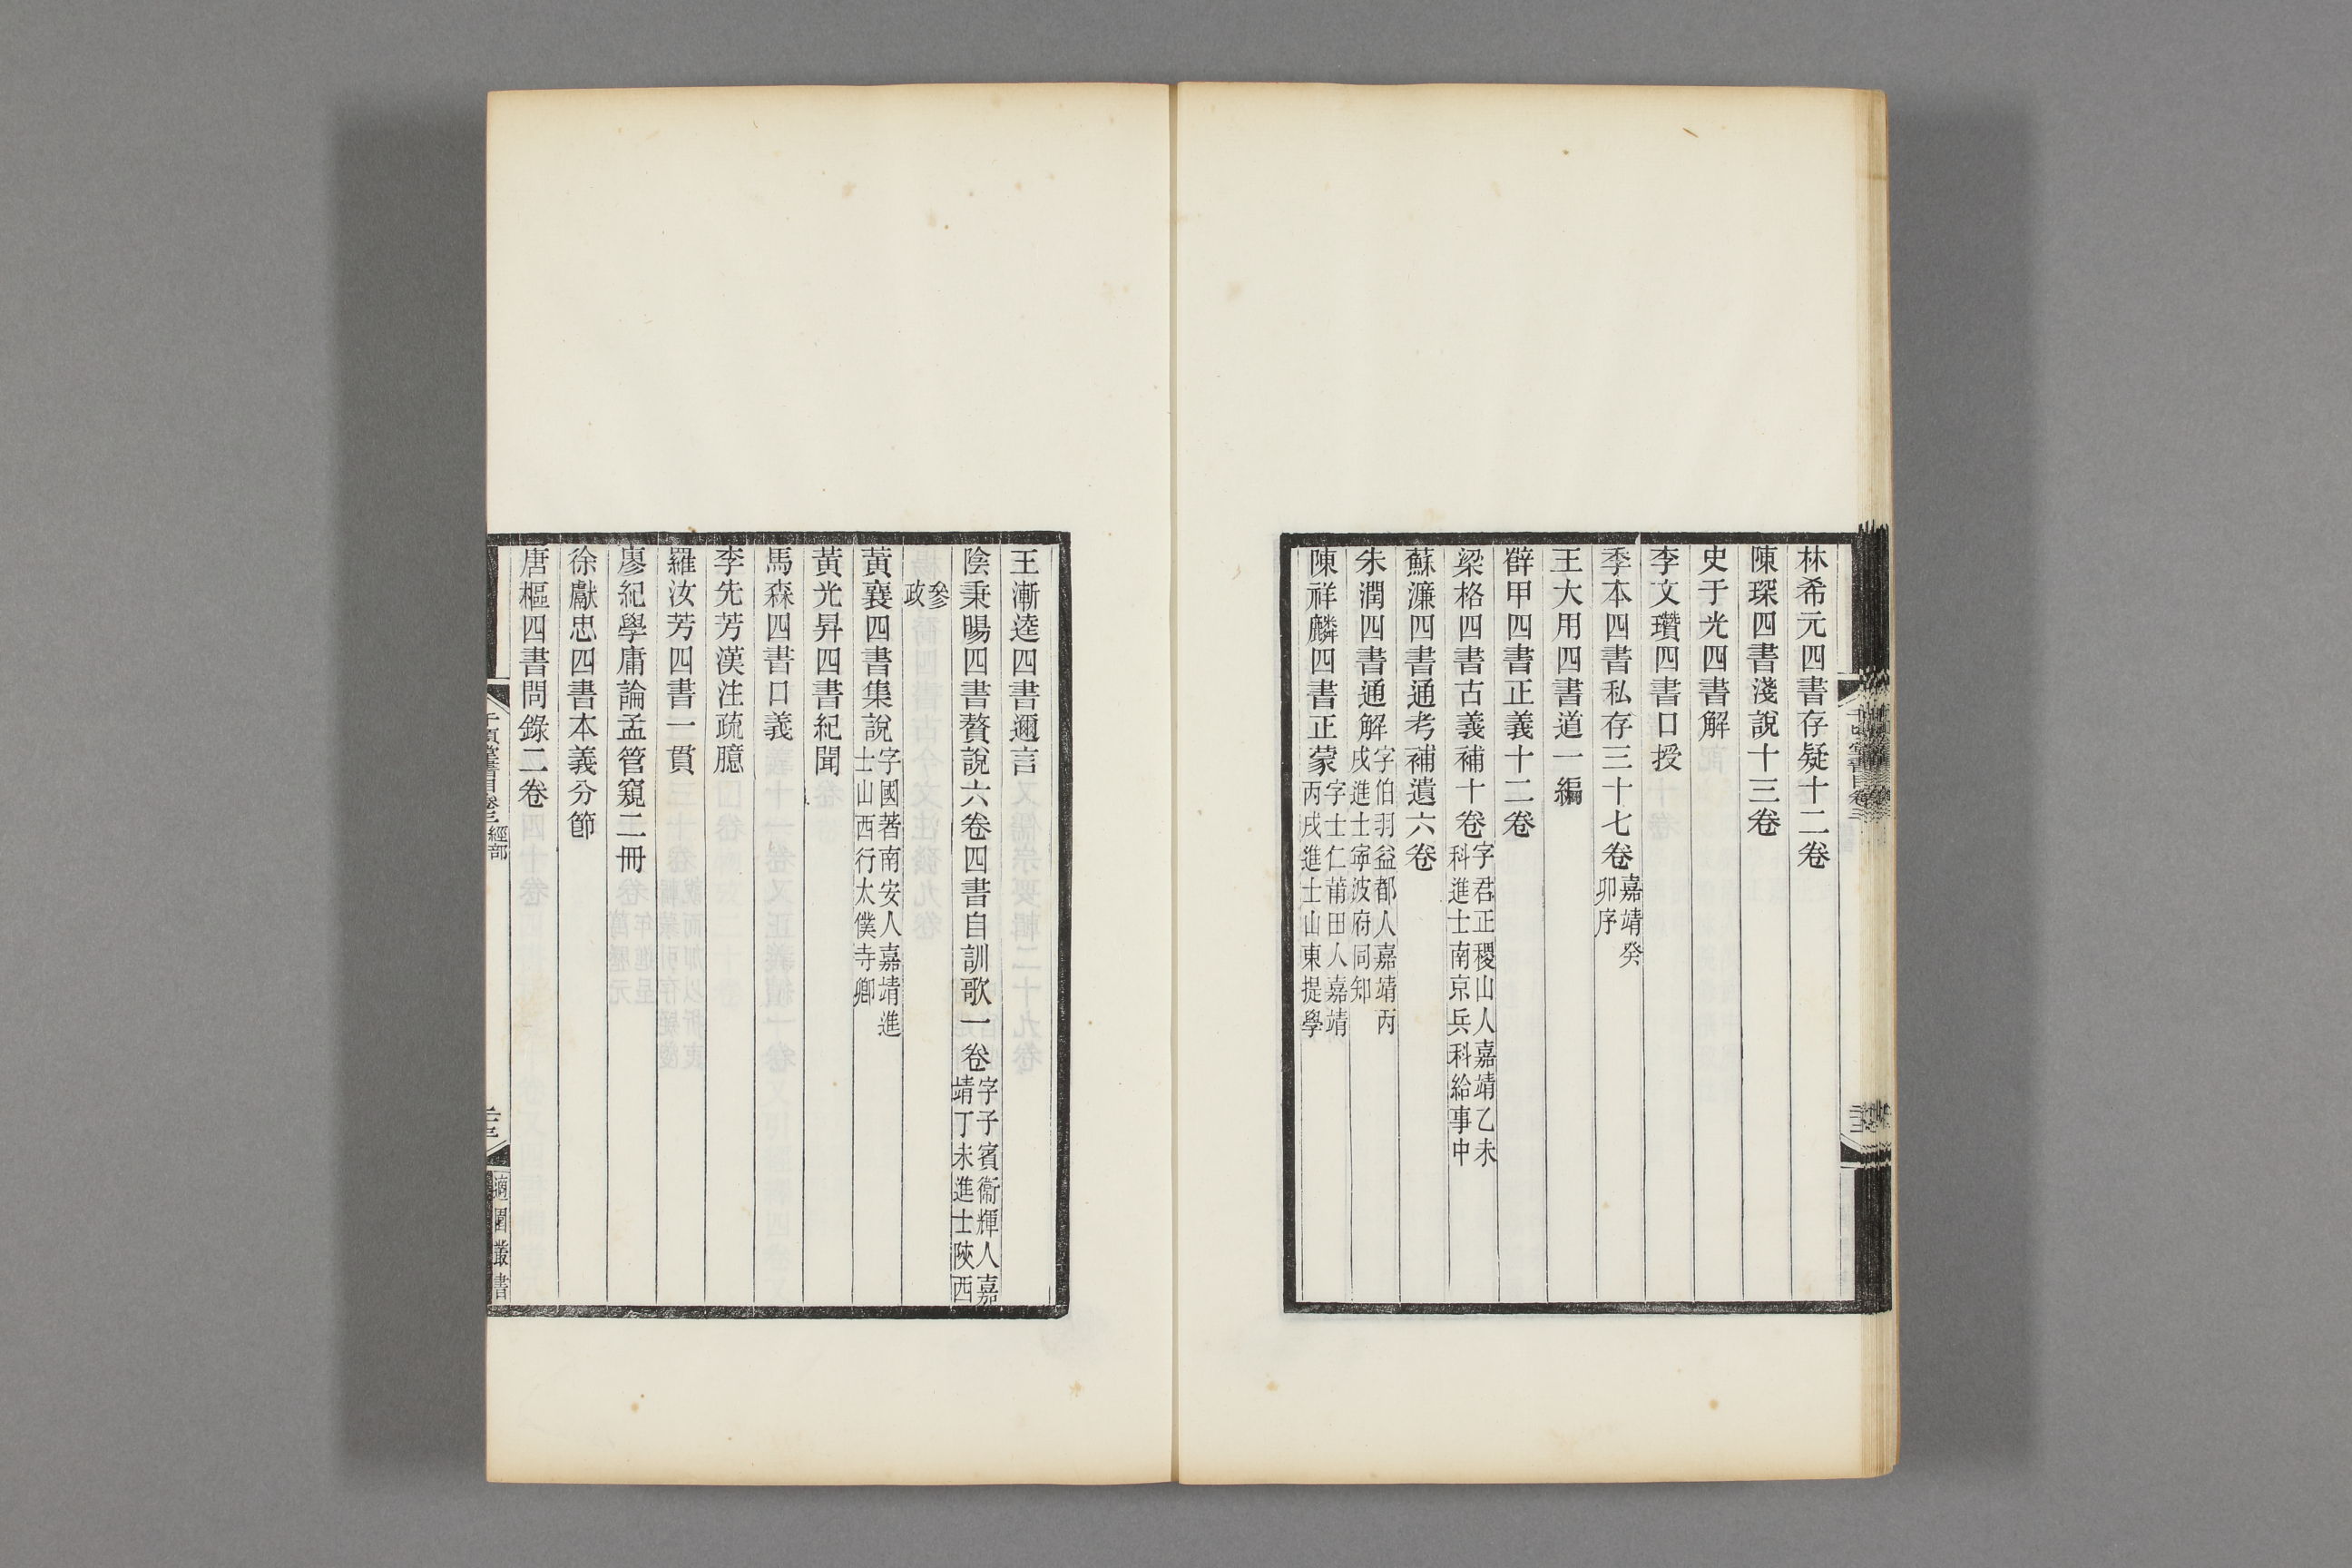 林希元四書存疑十二卷
陳琛四書淺說十三卷
史于光四書解
李文瓚四書口授
季本四書私存三十七卷嘉靖癸卯序
王大用四書道一編
薛甲四書正義十二卷
梁格四書古義補十卷字君正稷山人嘉靖乙未科進士南京兵科給事中
蘇濂四書通考補遺六卷
朱潤四書通解字伯羽益都人嘉靖丙戌進士寧波府同知
陳祥麟四書正蒙字士仁莆田人嘉靖丙戌進士山東提學
王漸逵四書邇言
陰秉暘四書贅說六卷四書自訓歌一卷字子賓衞輝人嘉靖丁未進士陝西
參政
黃襄四書集說字國著南安人嘉靖進士山西行太僕寺卿
黃光昇四書紀聞
馬森四書口義
李先芳漢注疏臆
羅汝芳四書一貫
廖紀學庸論孟管窺二冊
徐獻忠四書本義分節
唐樞四書問錄二卷
千頃堂書目卷三 經部
適園叢書